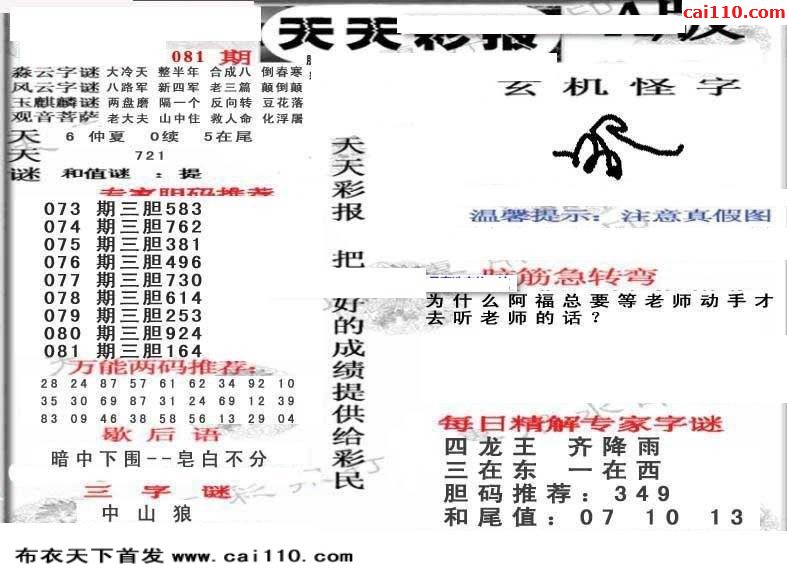 cai110.com
天天彩报
081 期
森云字谜 大冷天 整半年 合成八 倒春寒
风云字谜 八路军 新四军 老三篇 颠倒颠
玉麒麟谜 两盘磨 隔一个 反向转 豆花落
观音菩萨 老大夫 山中住 救人命 化浮屠
天 6 仲夏 0续 5在尾
天 721
谜 和值谜 : 提
专家胆码推荐
073 期三胆583
074 期三胆762
075 期三胆381
076 期三胆496
077 期三胆730
078 期三胆614
079 期三胆253
080 期三胆924
081 期三胆164
万能两码推荐:
28 24 87 57 61 62 34 92 10
35 30 69 87 31 24 69 12 39
83 09 46 38 58 56 13 29 04
歇后语
暗中下围--皂白不分
三字谜
中山狼
天天彩报 把好的成绩提供给彩民
玄机怪字
温馨提示: 注意真假图
脑筋急转弯
为什么阿福总要等老师动手才
去听老师的话?
每日精解专家字谜
四龙王 齐降雨
三在东 一在西
胆码推荐: 349
和尾值: 07 10 13
布衣天下首发 www.cai110.com